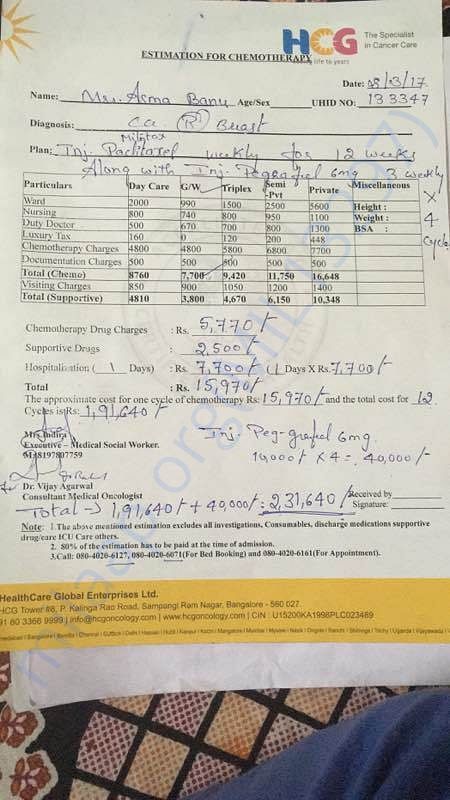 HCG The Specialist
in Cancer Care
ESTIMATION FOR CHEMOTHERAPY
life to years
Date: 08/3/17
Name: Mrs. Asma Banu Age/Sex UHID NO: 133347
Diagnosis: Ca (R) Breast
Plan: Inj. Paclitaxel weekly for 12 weeks
Along with Inj. Pegrafeel 6mg 3 weekly
X 4 cycle
Particulars Day Care G/W Triplex Semi -Pvt Private Miscellaneous
Ward 2000 990 1500 2500 5600 Height :
Nursing 800 740 800 950 1100 Weight :
Duty Doctor 500 670 700 800 1300 BSA :
Luxury Tax 160 0 120 200 448
Chemotherapy Charges 4800 4800 5800 6800 7700
Documentation Charges 500 500 500 500 500
Total (Chemo) 8760 7,700 9,420 11,750 16,648
Visiting Charges 850 900 1050 1200 1400
Total (Supportive) 4810 3,800 4,670 6,150 10,348
Chemotherapy Drug Charges : Rs. 5,770/-
Supportive Drugs : 2,500/-
Hospitalization ( 1 Days) : Rs. 7,700/- (1 Days X Rs. 7,700/-
Total : Rs. 15,970/-
The approximate cost for one cycle of chemotherapy Rs: 15,970/- and the total cost for 12
Cycles is Rs: 1,91,640/-
Mrs.Indira
Executive – Medical Social Worker.
9148197807759
Inj. Peg-grafeel 6mg.
10,000/- X 4 = 40,000/-
Dr. Vijay Agarwal
Consultant Medical Oncologist
Received by
Signature:
Total -> 1,91,640/- + 40,000/- = 2,31,640/-
Note: 1.The above mentioned estimation excludes all investigations, Consumables, discharge medications supportive
drug/care ICU Care others.
2. 80% of the estimation has to be paid at the time of admission.
3.Call: 080-4020-6127, 080-4020-6071(For Bed Booking) and 080-4020-6161(For Appointment).
HealthCare Global Enterprises Ltd.
HCG Tower #8, P. Kalinga Rao Road, Sampangi Ram Nagar, Bangalore - 560 027.
91 80 3366 9999 | info@hcgoncology.com | www.hcgoncology.com | CIN : U15200KA1998PLC023489